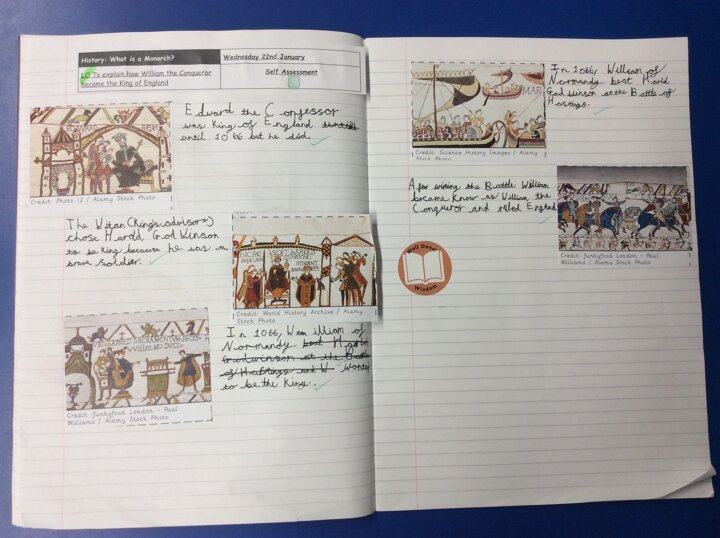 History: What is a Monarch?
Wednesday 22nd January
LO To explain how William the Conqueror
became the King of England
Self Assessment
Edward the Confessor
was King of England
until 1066 but he died.
EDWARD REX
Credit: Photo 12 / Alamy Stock Photo
The Witan (King's advisors)
chose Harold GodWinson
to be King because he was a
brave soldier.
Credit: World History Archive / Alamy
Stock Photo
SACRAMENTUM FECIT
VVILLELMO DUCI
Credit: funkyfood London - Paul
Williams / Alamy Stock Photo
In 1066, William of
Normandy beat Harold
Godwinson at the Battle
of Hastings and W wanted
to be the King.
MAR
Credit: Science History Images / Alamy
Stock Photo
In 1066, William of
Normandy beat Harold
Godwinson at the Battle of
Hastings.
William
became Know as William the
Conqueror and ruled England
Credit: funkyfood London - Paul
Williams / Alamy Stock Photo
Well Done!
Wisdom